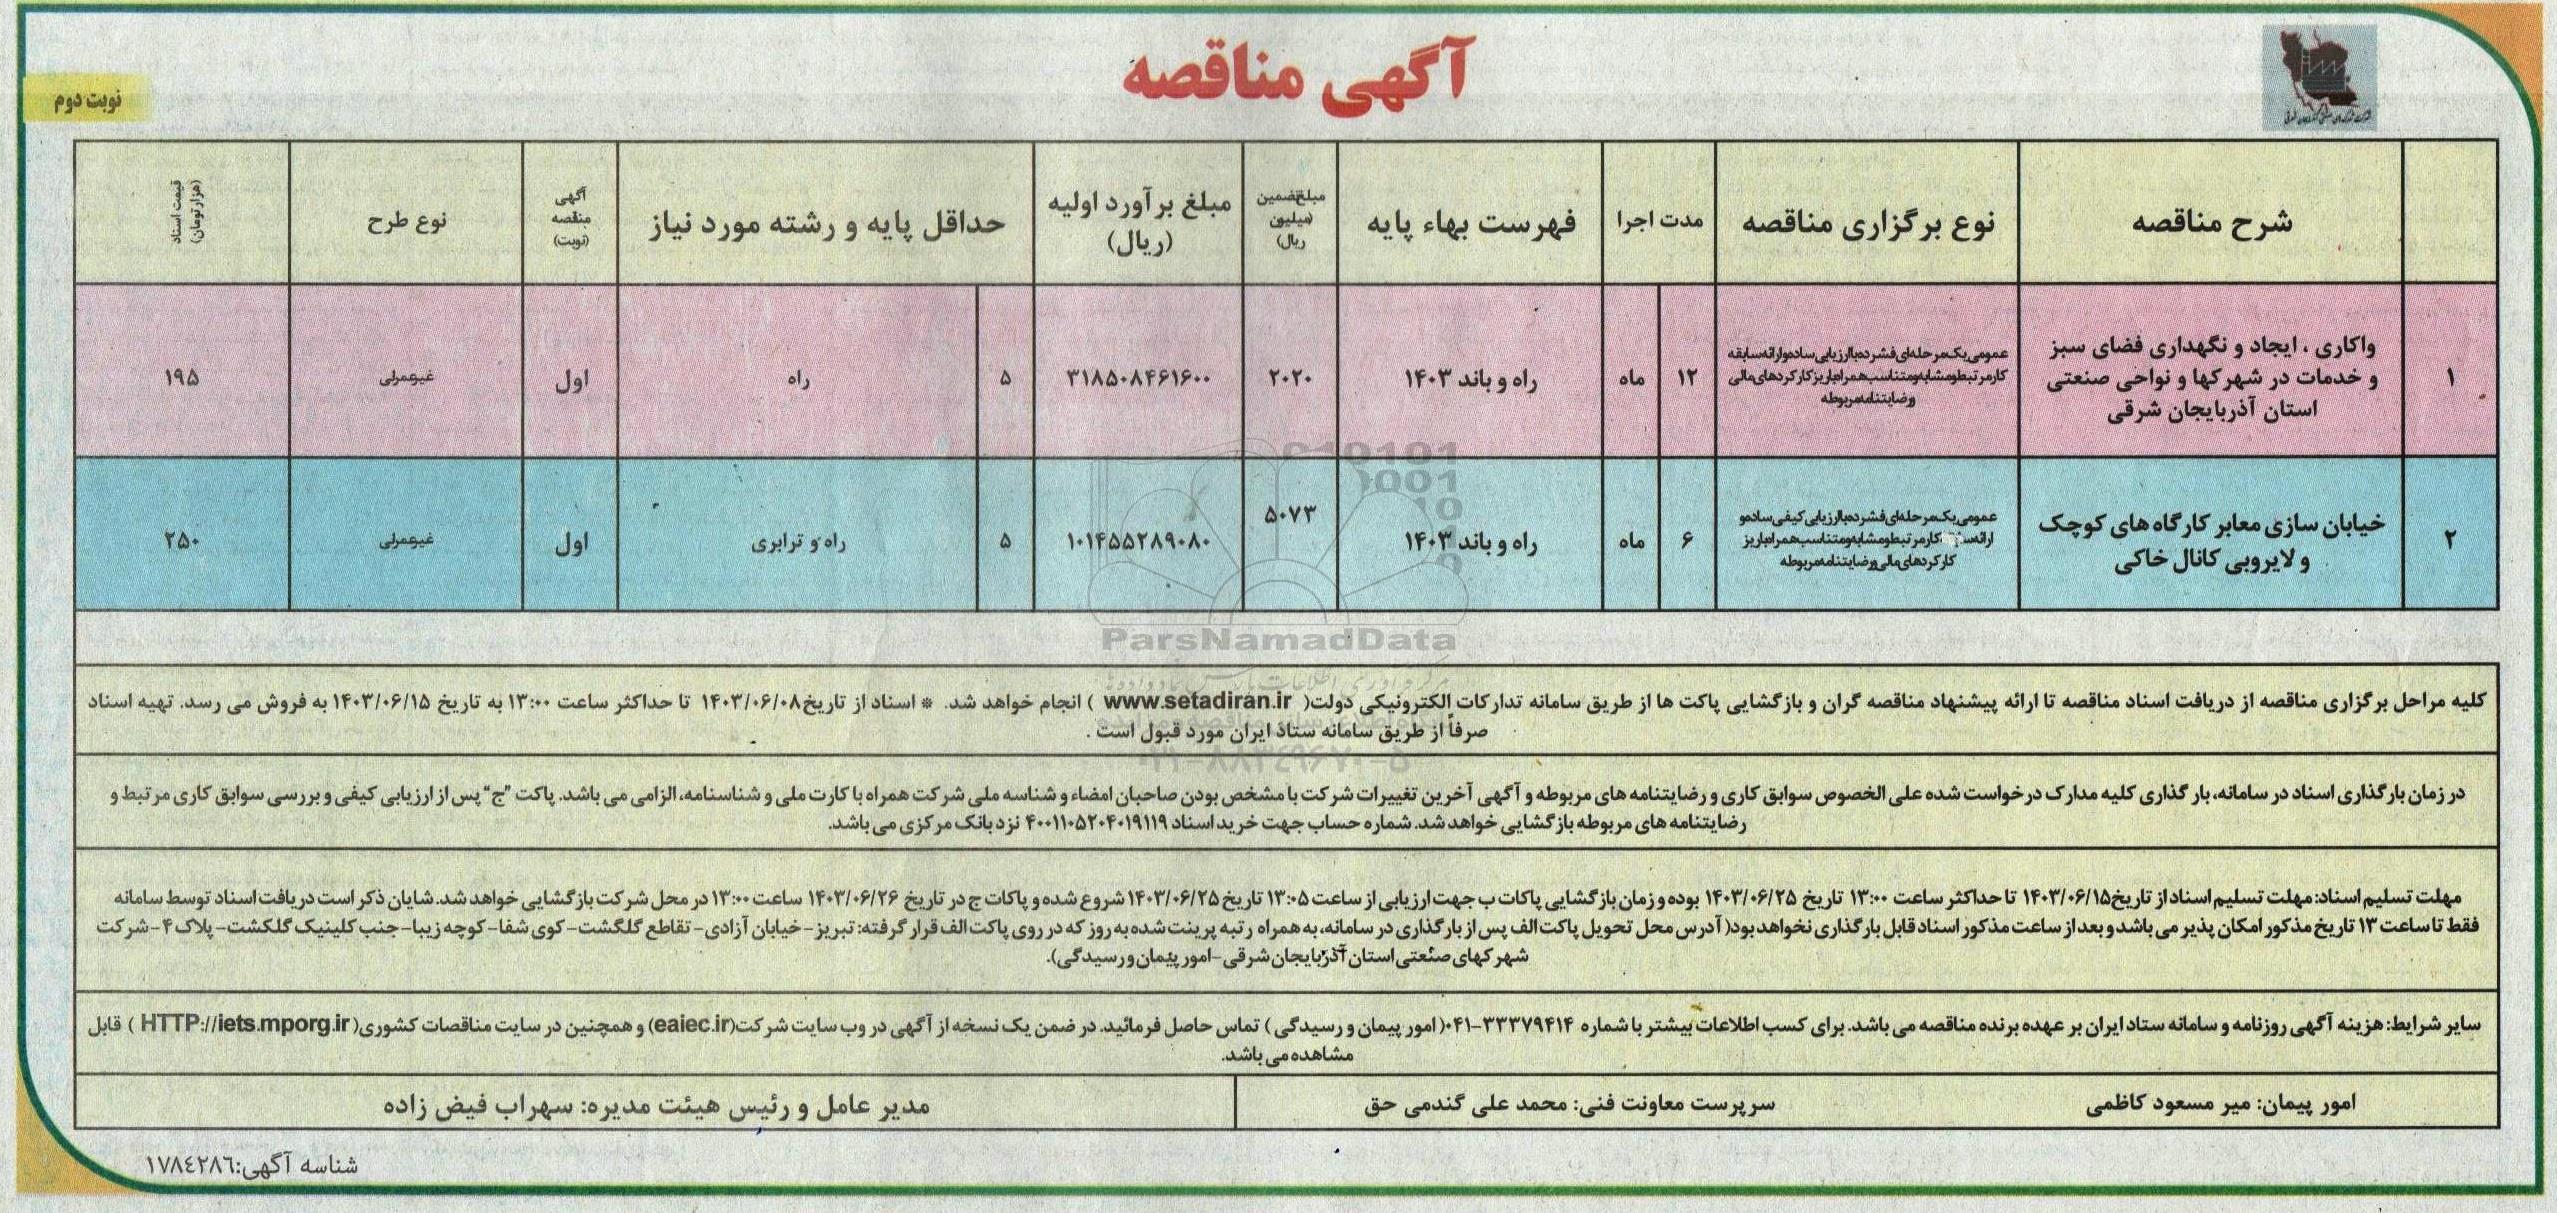 آگهی مناقصه
نوبت دوم
شرح مناقصه
نوع برگزاری مناقصه
مدت اجرا
فهرست بهاء پایه
مبلغ تضمین
(میلیون
ریال)
مبلغ برآورد اولیه
(ریال)
حداقل پایه و رشته مورد نیاز
آگهی
مناقصه
(نوبت)
نوع طرح
قیمت اسناد
(هزار تومان)
۱
واکاری ، ایجاد و نگهداری فضای سبز
و خدمات در شهرکها و نواحی صنعتی
استان آذربایجان شرقی
عمومی یک مرحله‌ای فشرده با ارزیابی ساده و ارائه سابقه
کار مرتبط و مشابه و متناسب همراه با ریز کارکردهای مالی
و رضایتنامه مربوطه
۱۲
ماه
راه و باند ۱۴۰۳
۲۰۲۰
۳۱۸۵۰۸۴۶۱۶۰۰
۵
راه
اول
غیرعمرانی
۱۹۵
۲
خیابان سازی معابر کارگاه های کوچک
و لایروبی کانال خاکی
عمومی یک مرحله‌ای فشرده با ارزیابی کیفی ساده و
ارائه کار مرتبط و مشابه و متناسب همراه با ریز
کارکردهای مالی و رضایتنامه مربوطه
۶
ماه
راه و باند ۱۴۰۳
۵۰۷۳
۱۰۱۴۵۵۲۸۹۰۸۰
۵
راه و ترابری
اول
غیرعمرانی
۲۵۰
ParsNamadData
کلیه مراحل برگزاری مناقصه از دریافت اسناد مناقصه تا ارائه پیشنهاد مناقصه گران و بازگشایی پاکت ها از طریق سامانه تدارکات الکترونیکی دولت( www.setadiran.ir ) انجام خواهد شد. * اسناد از تاریخ۱۴۰۳/۰۶/۰۸ تا حداکثر ساعت ۱۳:۰۰ به تاریخ ۱۴۰۳/۰۶/۱۵ به فروش می رسد. تهیه اسناد
صرفاً از طریق سامانه ستاد ایران مورد قبول است .
۰۲۱-۸۸۳۴۹۶۷۰-۵
در زمان بارگذاری اسناد در سامانه، بار گذاری کلیه مدارک درخواست شده علی الخصوص سوابق کاری و رضایتنامه های مربوطه و آگهی آخرین تغییرات شرکت با مشخص بودن صاحبان امضاء و شناسه ملی شرکت همراه با کارت ملی و شناسنامه، الزامی می باشد. پاکت "ج" پس از ارزیابی کیفی و بررسی سوابق کاری مرتبط و
رضایتنامه های مربوطه بازگشایی خواهد شد. شماره حساب جهت خرید اسناد ۴۰۰۱۱۰۵۲۰۴۰۱۹۱۱۹ نزد بانک مرکزی می باشد.
مهلت تسلیم اسناد: مهلت تسلیم اسناد از تاریخ۱۴۰۳/۰۶/۱۵ تا حداکثر ساعت ۱۳:۰۰ تاریخ ۱۴۰۳/۰۶/۲۵ بوده و زمان بازگشایی پاکات ب جهت ارزیابی از ساعت ۱۳:۰۵ تاریخ ۱۴۰۳/۰۶/۲۵ شروع شده و پاکات ج در تاریخ ۱۴۰۳/۰۶/۲۶ ساعت ۱۳:۰۰ در محل شرکت بازگشایی خواهد شد. شایان ذکر است دریافت اسناد توسط سامانه
فقط تا ساعت ۱۳ تاریخ مذکور امکان پذیر می باشد و بعد از ساعت مذکور اسناد قابل بارگذاری نخواهد بود( آدرس محل تحویل پاکت الف پس از بارگذاری در سامانه، به همراه رتبه پرینت شده به روز که در روی پاکت الف قرار گرفته: تبریز- خیابان آزادی- تقاطع گلگشت- کوی شفا- کوچه زیبا- جنب کلینیک گلگشت- پلاک ۴- شرکت
شهرکهای صنعتی استان آذربایجان شرقی- امور پیمان و رسیدگی).
سایر شرایط: هزینه آگهی روزنامه و سامانه ستاد ایران بر عهده برنده مناقصه می باشد. برای کسب اطلاعات بیشتر با شماره ۳۳۳۷۹۴۱۴-۰۴۱( امور پیمان و رسیدگی ) تماس حاصل فرمائید. در ضمن یک نسخه از آگهی در وب سایت شرکت(eaiec.ir) و همچنین در سایت مناقصات کشوری( HTTP://iets.mporg.ir ) قابل
مشاهده می باشد.
امور پیمان: میر مسعود کاظمی
سرپرست معاونت فنی: محمد علی گندمی حق
مدیر عامل و رئیس هیئت مدیره: سهراب فیض زاده
شناسه آگهی:۱۷۸٤۲۸٦